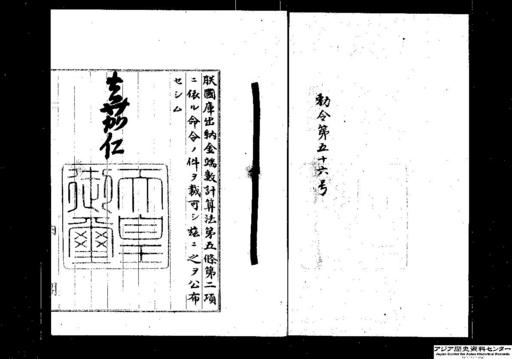 勅令第五十六号
朕國庫出納金端數計算法第五條第二項
ニ依ル命令ノ件ヲ裁可シ茲ニ之ヲ公布
セシム
嘉仁
天皇
御璽
アジア歴史資料センター
Japan Center for Asian Historical Records